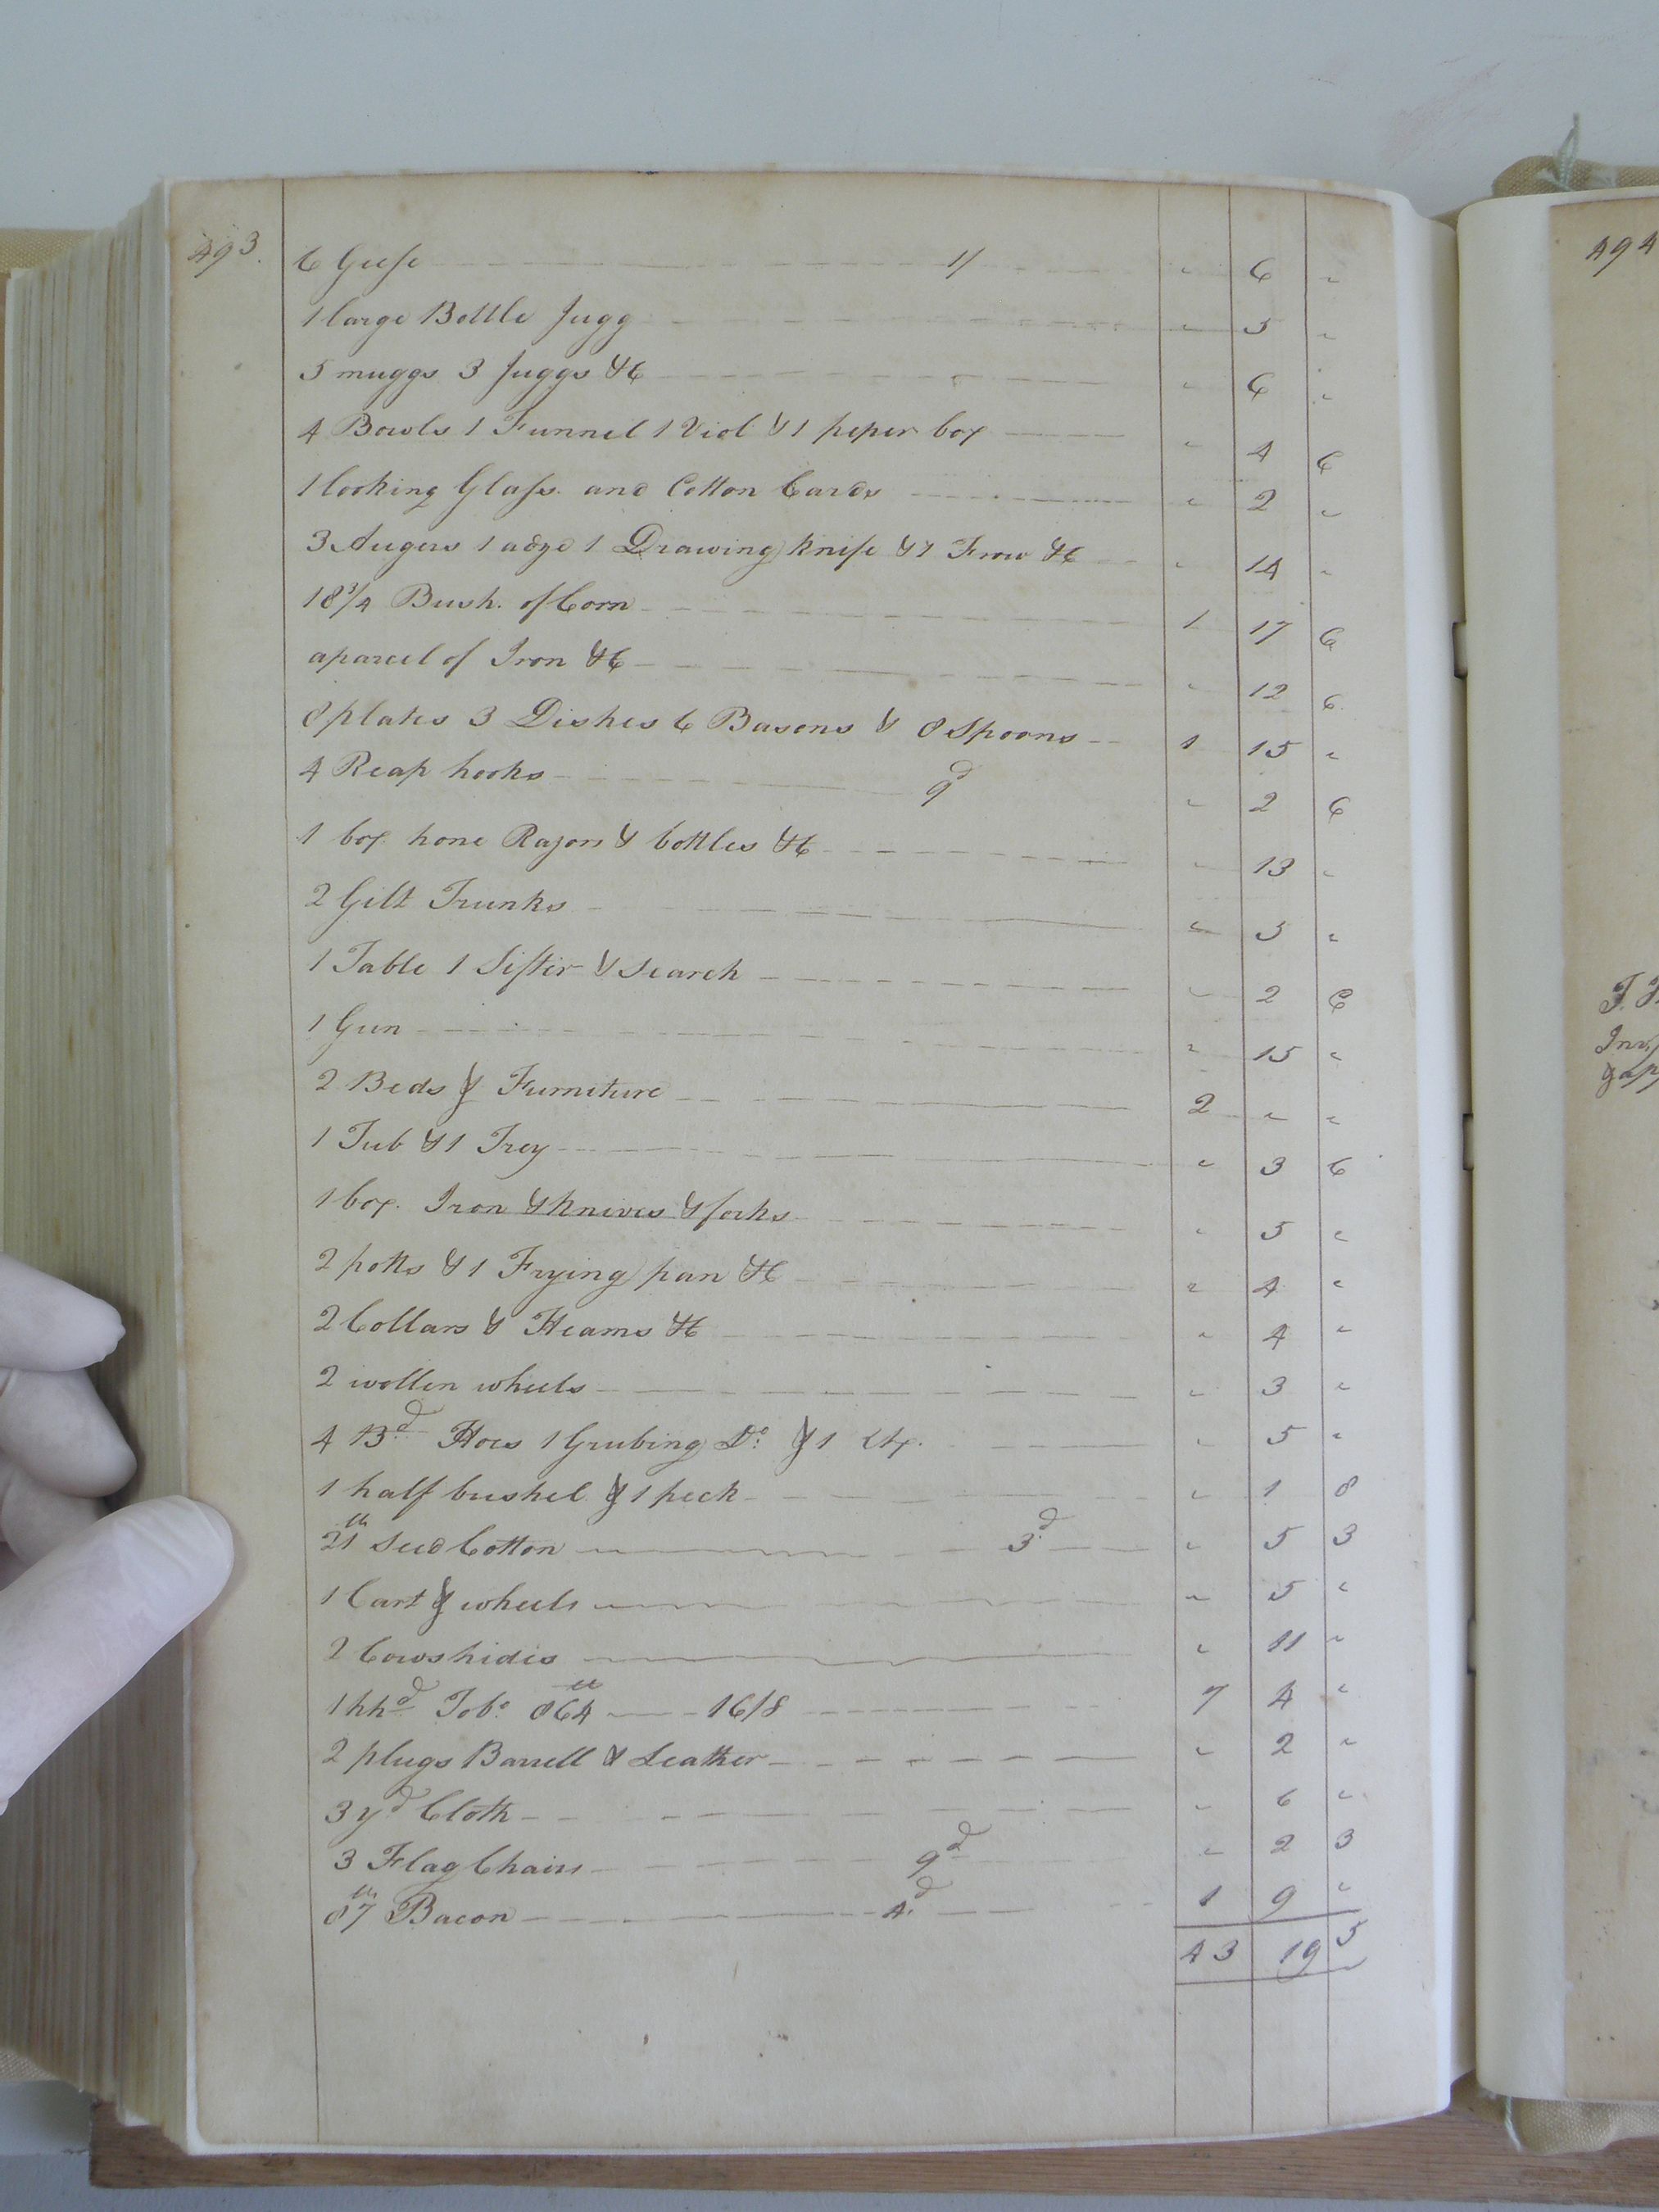 493.
6 Geese 1/ " 6 "
1 large Bottle Jugg " 5 "
5 muggs 3 Juggs &C " 6 "
4 Bowls 1 Funnel 1 Viol & 1 peper box " 4 6
1 looking Glass and Cotton Cards " 2 "
3 Augers 1 adze 1 Drawing knife & 1 Frow &C " 14 "
18 3/4 Bush. of Corn 1 17 6
a parcel of Iron &C " 12 6
8 plates 3 Dishes 6 Basons & 8 Spoons 1 15 "
4 Reap hooks 9d " 2 6
1 box hone Razors & bottles &C " 13 "
2 Gilt Trunks " 5 "
1 Table 1 Sifter & search " 2 6
1 Gun " 15 "
2 Beds & Furniture 2 " "
1 Tub & 1 Trey " 3 6
1 box Iron & knives & forks " 5 "
2 potts & 1 Frying pan &C " 4 "
2 Collars & Heams &C " 4 "
2 wollen wheels " 3 "
4 Bd Hoes 1 Grubing Do & 1 " 5 "
1 half bushel & 1 peck " 1 8
21 lb Seed Cotton 3d " 5 3
1 Cart & wheels " 5 "
2 Cowshides " 11 "
1 hhd Tobo 864 lb 16/8 7 4 "
2 plugs Barrell & Leather " 2 "
3 yd Cloth " 6 "
3 Flag Chairs 9d " 2 3
87 lb Bacon 4d 1 9 "
43 19 5
494